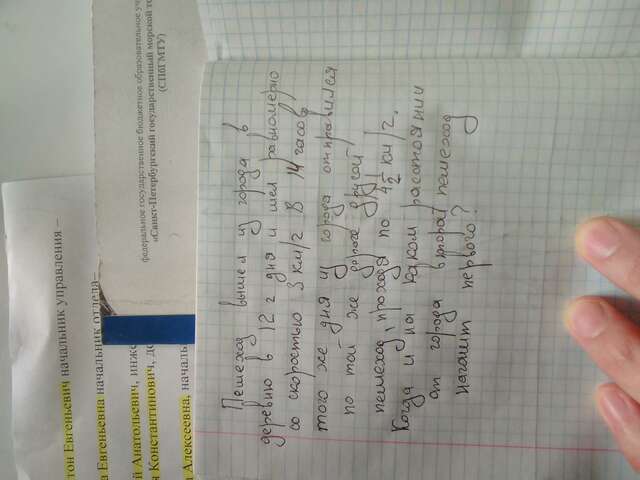 федеральное государственное бюджетное образовательное уч
«Санкт-Петербургский государственный морской те
(СПбГМТУ)
тон Евгеньевич начальник управления –
а Евгеньевна начальник отдела–
й Анатольевич, инже
я Константинович, до
а Алексеевна, началь
Пешеход вышел из города в
деревню в 12 г дня и шел равномерно
со скоростью 3 км/г В 14 часов
того же дня из города отправился
по той же дороге другой
пешеход, проходя по 4 1/2 км/г.
Когда и на каком расстоянии
от города второй пешеход
нагонит первого?